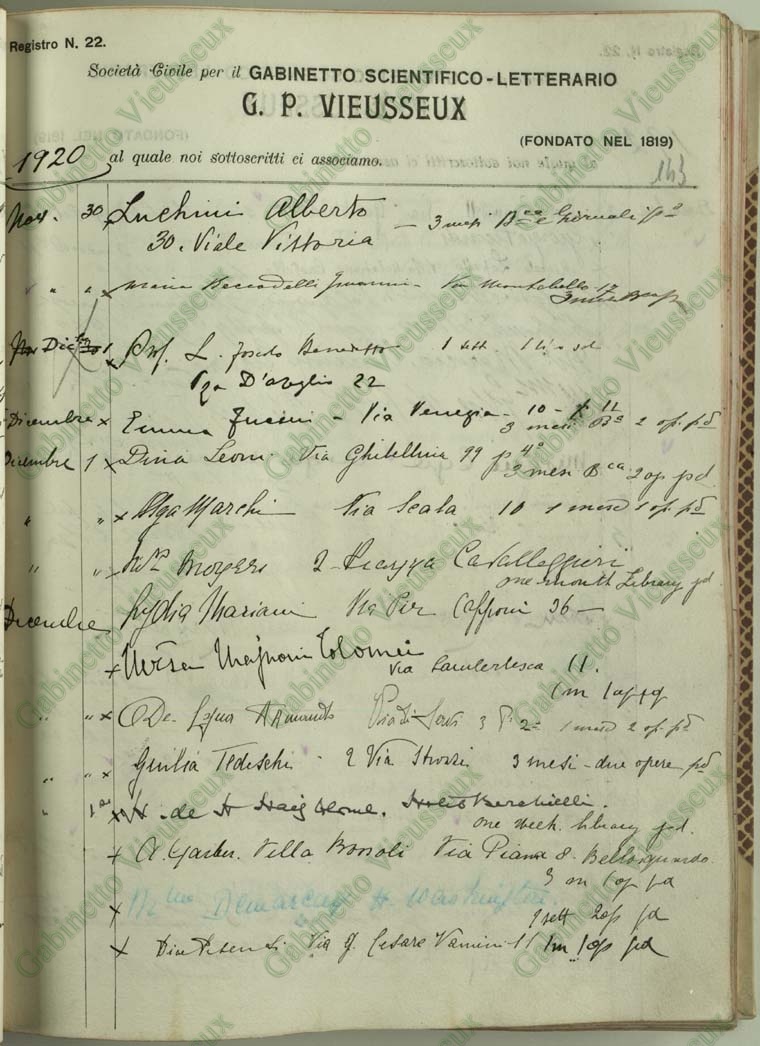 Registro N. 22.
Società Civile per il GABINETTO SCIENTIFICO-LETTERARIO
G. P. VIEUSSEUX
(FONDATO NEL 1819)
1920 al quale noi sottoscritti ci associamo.
143
Nov. 30 Luchini Alberto — 3 mesi Giornali
30. Viale Vittoria
" " x Maria Beccadelli - Via Montebello 17
Dic 1 x Prof. L. Foscolo Benedetto 1 sett.
Pza D'Azeglio 22
Dicembre x Emma Fucini - Via Venezia - 10 - 11
3 mesi Bca 2 op. pd
Dicembre 1 x Dina Leoni Via Ghibellina 99 p 4°
3 mesi Bca 2 op pd
" " x Olga Marchi Via Scala 10 1 mese 1 op. pd
" " x 2 Piazza Cavalleggeri
one month Library pd.
Dicembre Lydia Mariani Via Pier Capponi 36 —
x Magnoni Tolomei
Via Lambertesca 11.
1 m 1 op pd
" " x Armando 1 mese 2 op. pd
" " x Giulia Tedeschi - 2 Via Strozzi 3 mesi - due opere pd
" 1 x H. de H Haig Hotel Berchielli.
one week library pd.
x A. Villa Via Piana 8. Bellosguardo
3 m 1 op pd
x Mme Demarcay H. Washington.
1 sett 2 op pd
x Via G. Cesare Vanini 11 1 m 1 op pd
Gabinetto Vieusseux